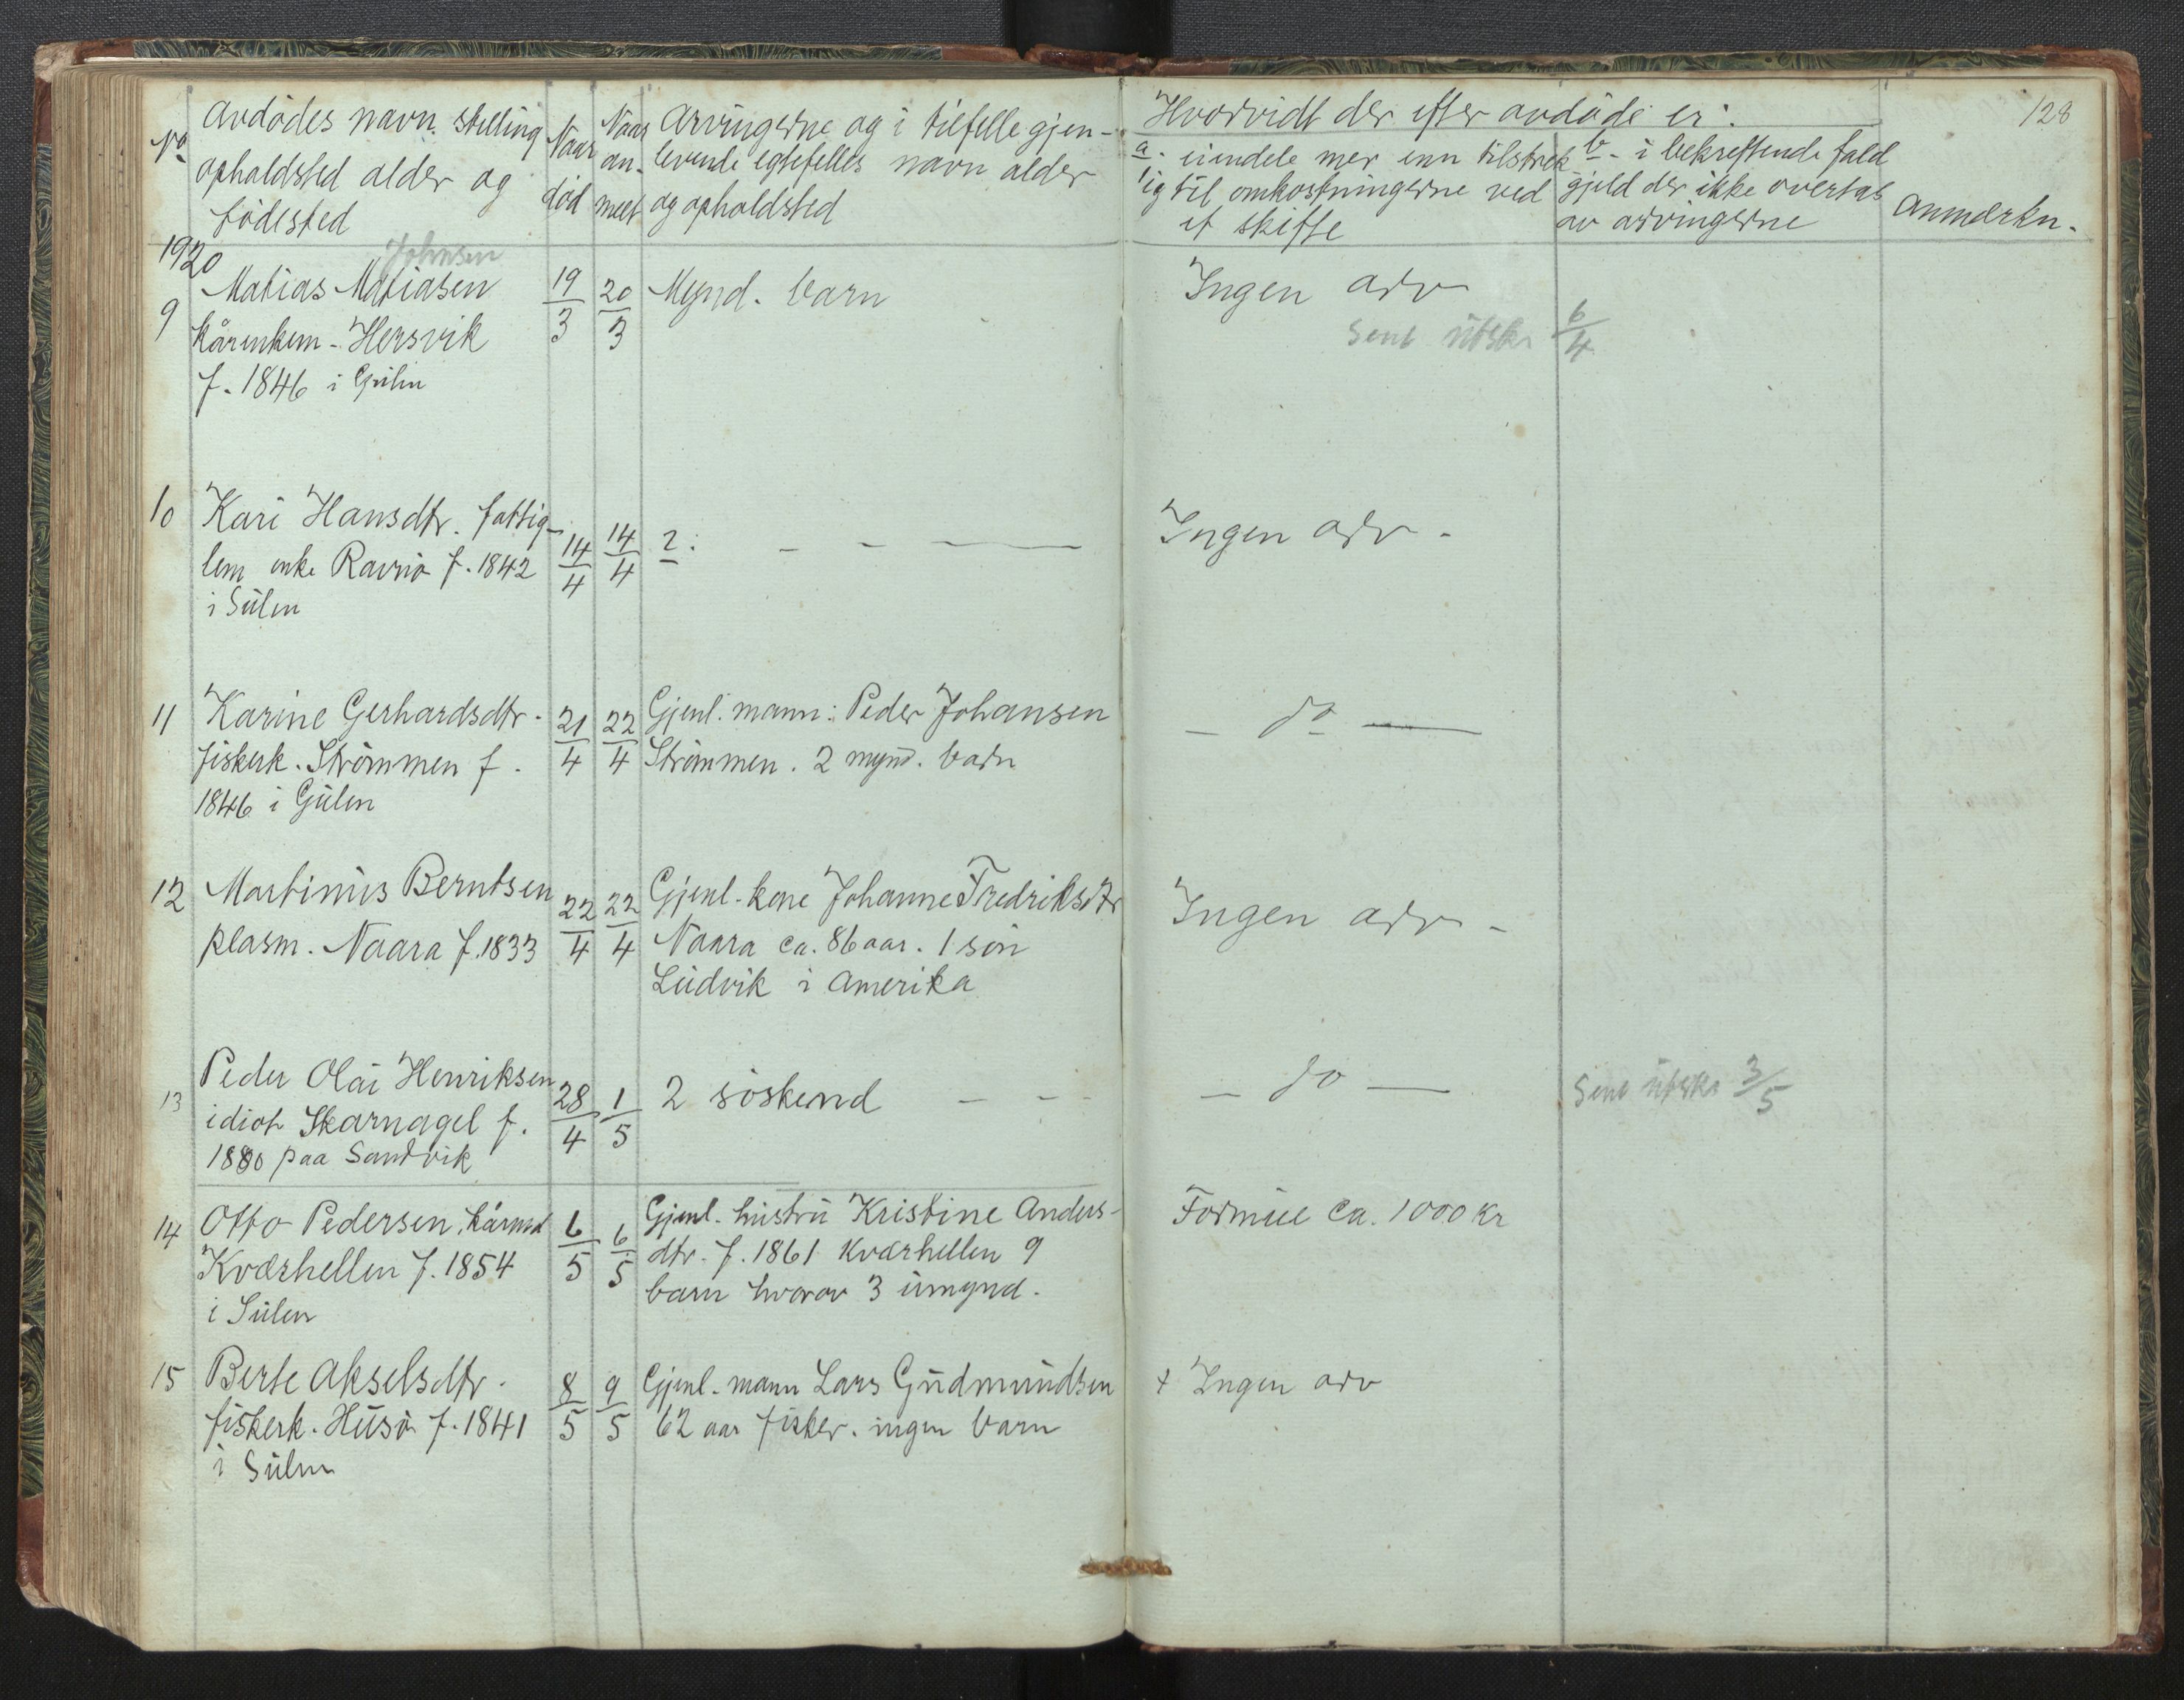 128
No Avdødes navn. stilling opholdsted alder og fødested
Naar død
Naar an- meet
Arvingerne og i tilfelle gjen- levende egtefelles navn alder og opholdsted
Hvorvidt der efter avdøde er:
a. eiendele mer enn tilstræk lig til omkostningerne ved et skifte
b. i bekreftende fald gjeld der ikke overtas av arvingerne
Anmerkn.
1920
Johnsen
9 Matias Matiasen 19/3 20/3 Mynd. barn Ingen arv
kårenkem - Hersvik Sent utskr 6/4
f. 1846 i Gulen
10 Kari Hansdtr. fattig- 14/4 14/4 2: - - — Ingen arv -
lem enke Ravnø f. 1842
i Sulen
11 Karine Gerhardsdtr. 21/4 22/4 Gjenl. mann: Peder Johansen - do —
fiskerk. Strømmen f. Strømmen. 2 mynd. barn
1846 i Gulen
12 Martinus Berntsen 22/4 22/4 Gjenl. kone Johanne Fredriksdtr Ingen arv -
plasm. Naara f. 1833 Naara ca. 86 aar. 1 søn
Ludvik i Amerika
13 Peder Olai Henriksen 28/4 1/5 2 søskend - - - - do — Sent utskr 3/5
idiot Skarnagel f.
1880 paa Sandvik
14 Otto Pedersen, kårmd 6/5 6/5 Gjenl. hustru Kristine Anders- Formue ca. 1000 kr
Kværhellen f. 1854 dtr. f. 1861 Kværhellen 9
i Sulen barn hvorav 3 umynd.
15 Berte Akselsdtr. 8/5 9/5 Gjenl. mann Lars Gudmundsen + Ingen arv
fiskerk. Husø f. 1841 62 aar fisker. ingen barn
i Sulen